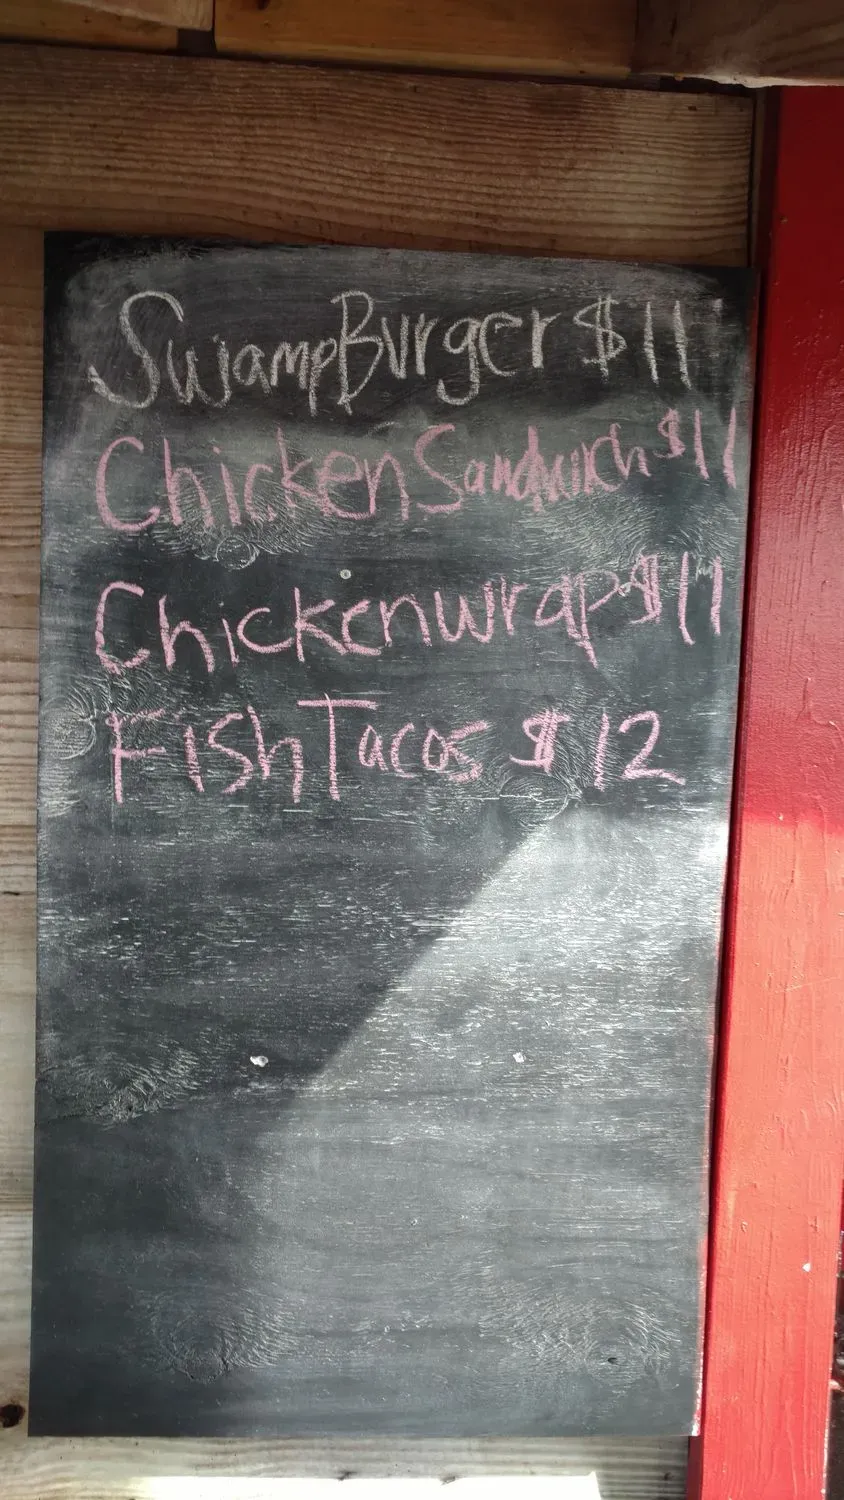 SwampBurger $11
Chicken Sandwich $11
Chicken wrap $11
Fish Tacos $12